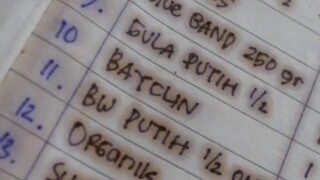 9. BAND 250 gr
10 GULA PUTIH 1/2
11. BAYCLIN
12. BW PUTIH 1/2
13. ORganik